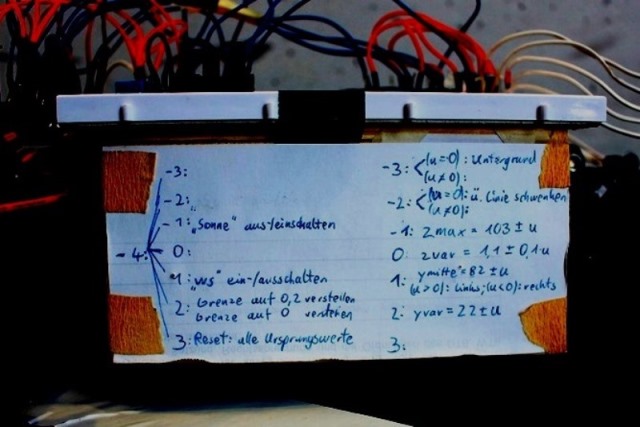 -4:
-3:
-2:
-1: „Sonne" aus-/einschalten
0:
1: „vvs" ein-/ausschalten
2: Grenze auf 0,2 verstellen
Grenze auf 0 verstellen
3: Reset: alle Ursprungswerte
-3: (u=0): Untergrund
(u≠0):
-2: (u=0): ü. Linie schwenken
(u≠0):
-1: zmax = 103 ± u
0: zvar = 1,1 ± 0,1·u
1: ymitte = 82 ± u
(u>0): links; (u<0): rechts
2: yvar = 22 ± u
3: